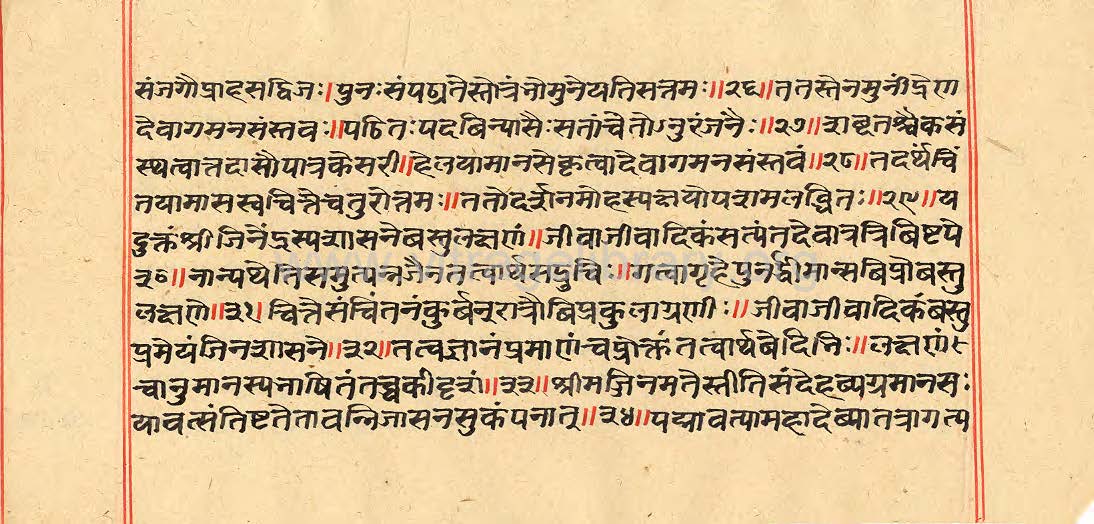 संजगौप्राहसद्विजः।पुनःसंपठ्यतेस्तोत्रंनोमुनेयतिसत्तमः॥२६॥ततस्तेनमुनींद्रेण
देवागमनसंस्तवः॥पठितःपदबिन्यासैःसतांचेतोऽनुरंजनैः॥२७॥शब्दतश्चैकसं
स्थत्वात्तदासौपात्रकेसरी॥हेलयामानसेकृत्वादेवागमनसंस्तवं॥२८॥तदर्थंचिं
तयामासस्वचित्तेचतुरोत्तमः॥ततोदर्शनमोहस्यक्षयोपशमलब्धितः॥२९॥य
दुक्तंश्रीजिनेंद्रस्यशासनेबस्तुलक्षणं॥जीवाजीवादिकंसत्यंतदेवात्रत्रिबिष्टपे
३०॥नान्यथेतिसमुत्पन्नजैनतत्वार्थसद्रुचिः॥गत्वागृहेपुनर्द्धीमान्सबिप्रोबस्तु
लक्षणे॥३१॥चित्तेसंचिंतनंकुर्बन्रात्रौबिप्रकुलाग्रणीः॥जीवाजीवादिकंबस्तु
प्रमेयंजिनशासने॥३२॥तत्वज्ञानंप्रमाणंचप्रोक्तंतत्वार्थबेदिभिः॥लक्षणं
चानुमानस्यभाषितंतच्चकीदृशं॥३३॥श्रीमज्जिनमतेस्तीतिसंदेहव्यग्रमानसः
यावत्संतिष्टतेतावन्निजासनसुकंपनात्॥३४॥पद्मावत्यामहादेव्यातत्रागत्य
www.vitragelibrary.org